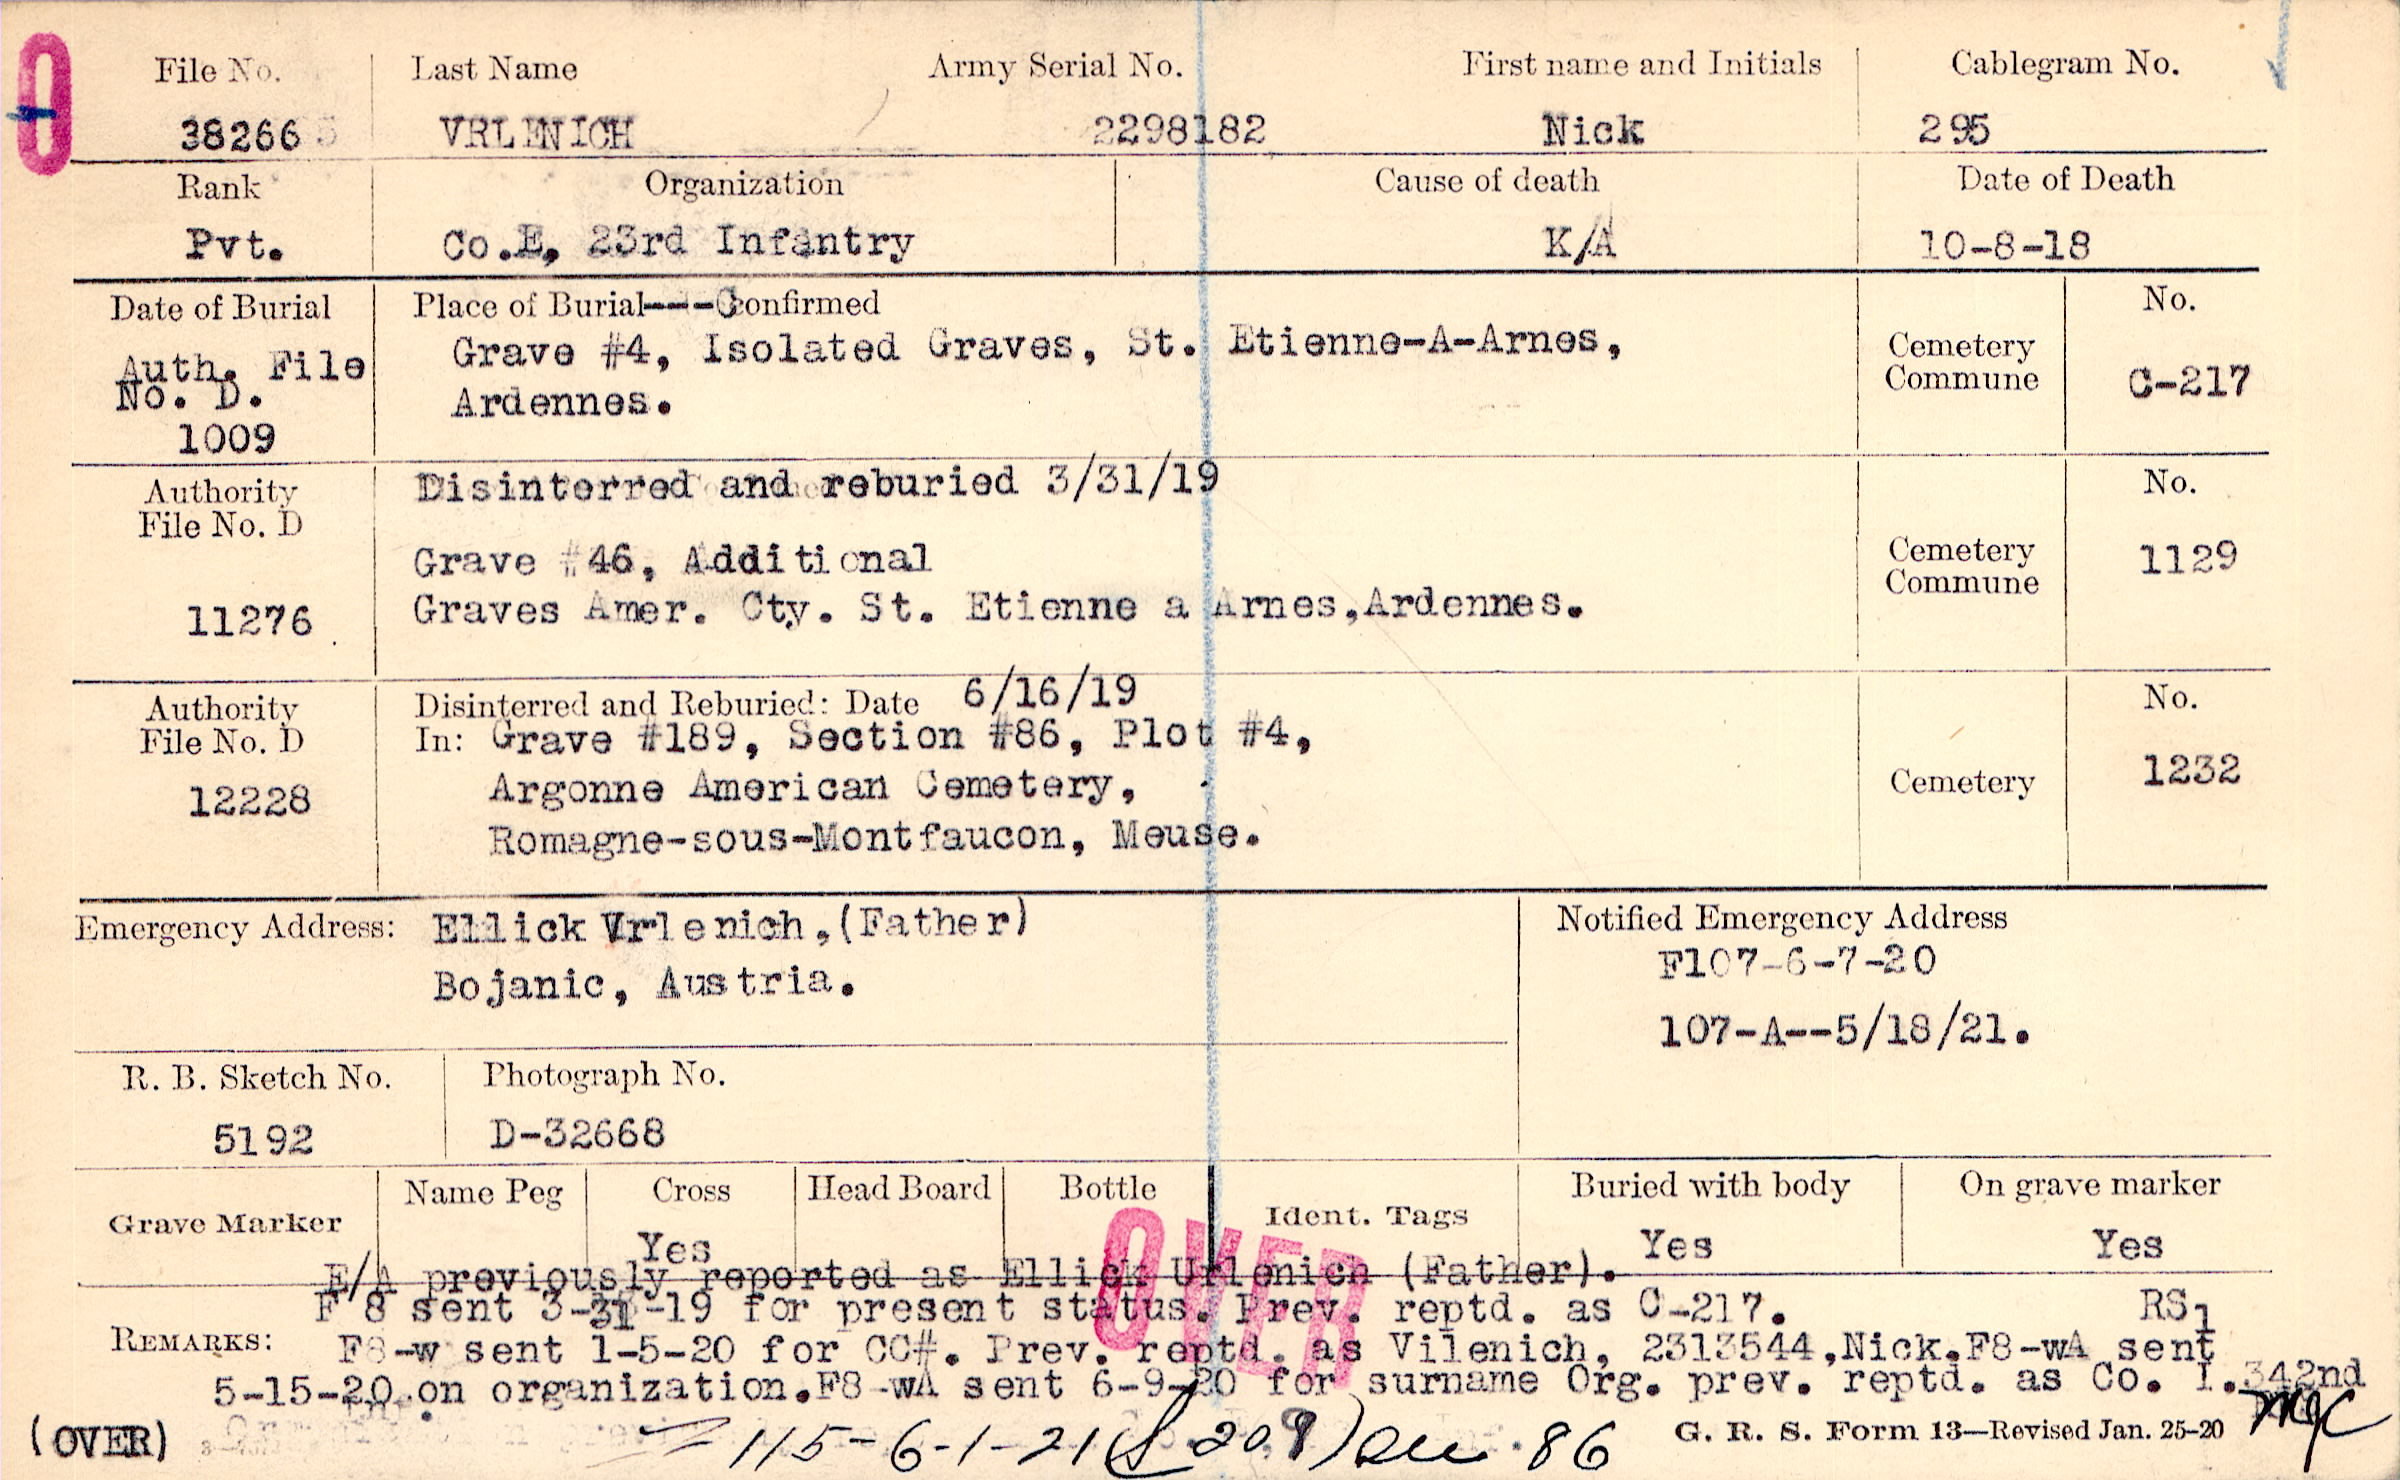 File No. Last Name Army Serial No. First name and Initials Cablegram No.
38266 VRLENICH 2298182 Nick 295
Rank Organization Cause of death Date of Death
Pvt. Co.E, 23rd Infantry K/A 10-8-18
Date of Burial Place of Burial----Confirmed No.
Auth. File Grave #4, Isolated Graves, St. Etienne-A-Arnes, Cemetery
No. D. Ardennes. Commune C-217
1009
Authority Disinterred and reburied 3/31/19 No.
File No. D
Grave #46, Additional Cemetery 1129
11276 Graves Amer. Cty. St. Etienne a Arnes,Ardennes. Commune
Authority Disinterred and Reburied: Date 6/16/19 No.
File No. D In: Grave #189, Section #86, Plot #4,
12228 Argonne American Cemetery, Cemetery 1232
Romagne-sous-Montfaucon, Meuse.
Emergency Address: Ellick Vrlenich,(Father) Notified Emergency Address
Bojanic, Austria. F107-6-7-20
107-A--5/18/21.
R. B. Sketch No. Photograph No.
5192 D-32668
Grave Marker Name Peg Cross Head Board Bottle Ident. Tags Buried with body On grave marker
Yes Yes Yes
E/A previously reported as Ellick Urlenich (Father).
F 8 sent 3-31-19 for present status. Prev. reptd. as C-217. RS1
REMARKS: F8-w sent 1-5-20 for CC#. Prev. reptd. as Vilenich, 2313544,Nick.F8-wA sent
5-15-20 on organization.F8-wA sent 6-9-20 for surname Org. prev. reptd. as Co. I.342nd
OVER
(OVER) 115-6-1-21 86 G. R. S. Form 13—Revised Jan. 25-20